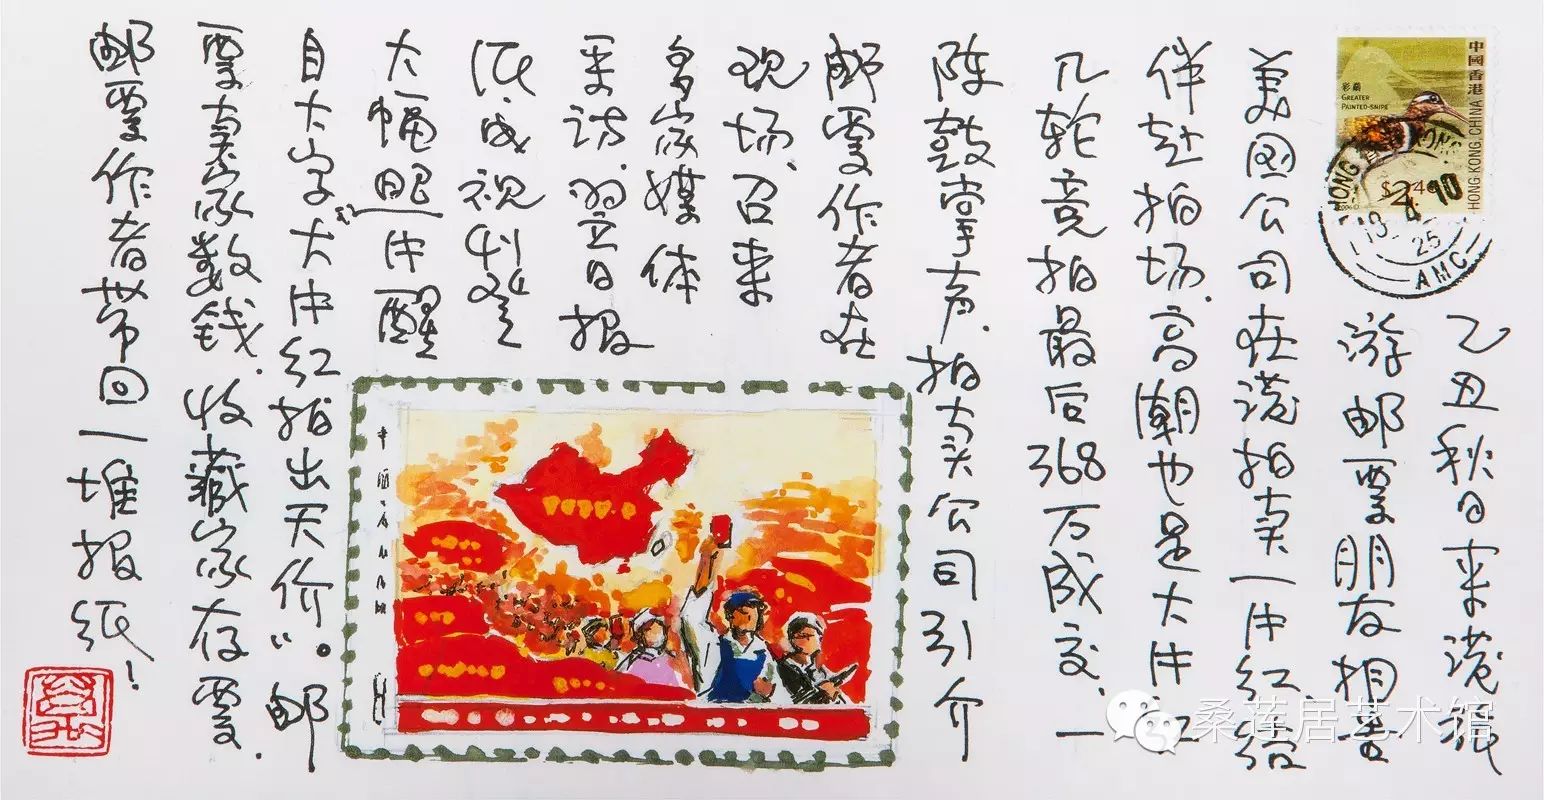 乙丑秋日来港祇
游邮票朋友相告
美国公司在港拍卖一片红绍
伴赴拍场、高潮也是大片红
几轮竞拍最后368万成交、一
阵鼓掌声、拍卖公司引介
邮票作者在
现场、召来
多家媒体
采访、翌日报
纸、电视刊登
大幅照片醒
目大字“大片红拍出天价”。邮
票卖家数钱、收藏家存票、
邮票作者带回一堆报纸！
中国香港
HONG KONG, CHINA
彩鹬
GREATER
PAINTED-SNIPE
$2.40
HONG KONG
13 4 10
25
AMC
桑莲居艺术馆